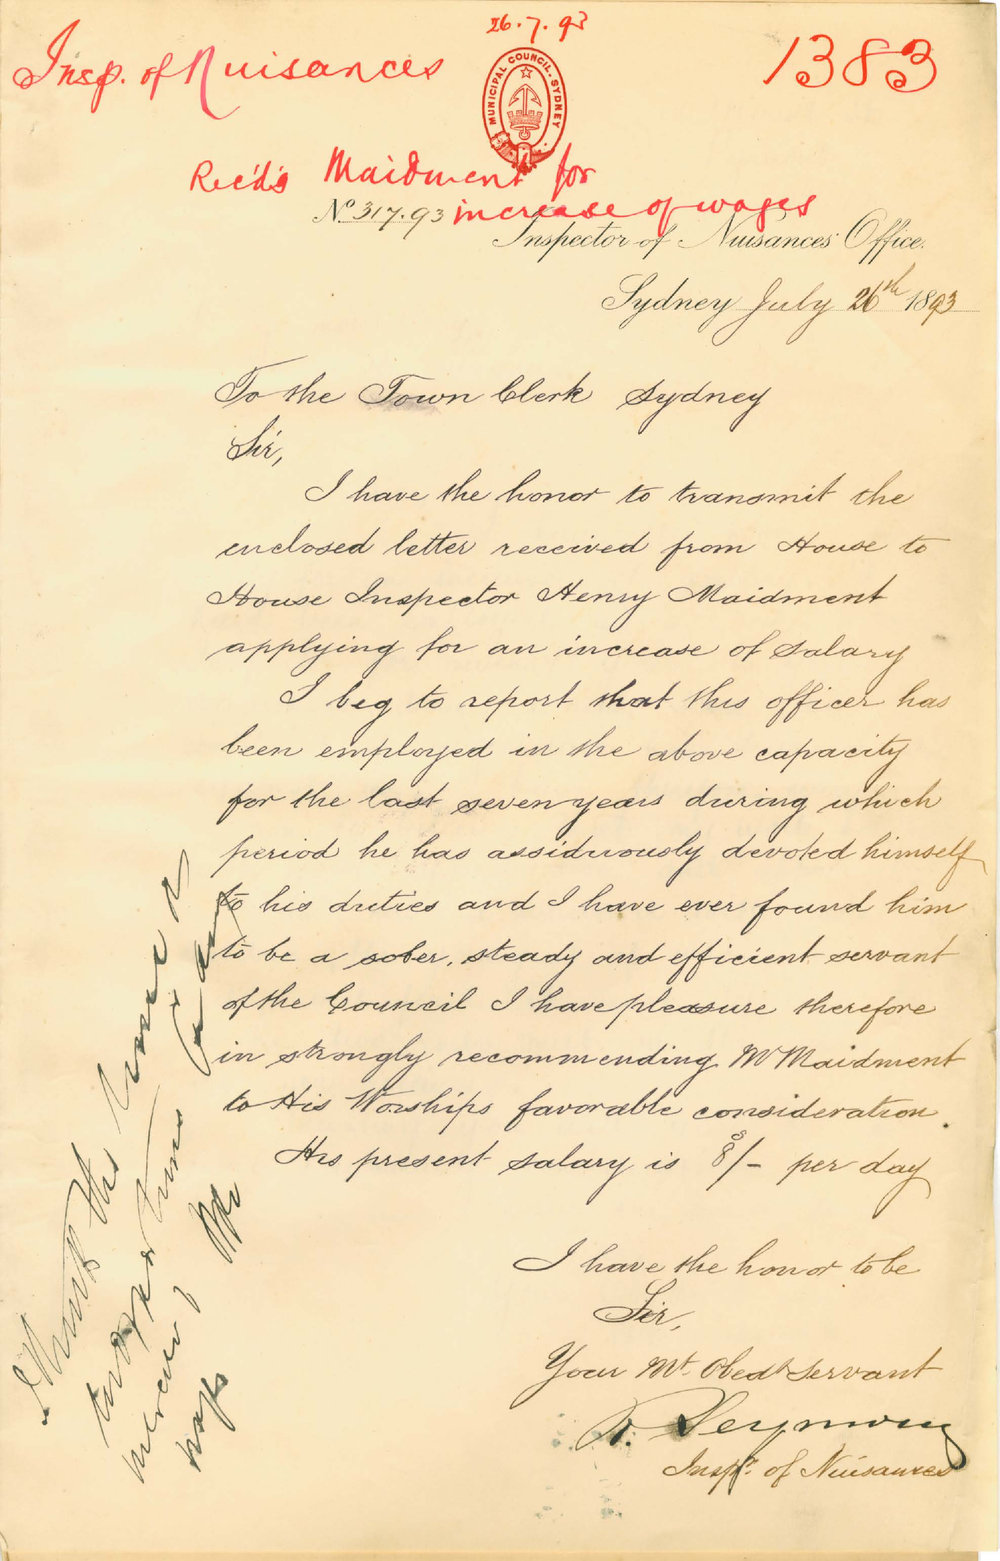 26.7.93
Insp. of Nuisances
1383
MUNICIPAL COUNCIL SYDNEY
Rec'ds Maidment for
increase of wages
No 317.93
Inspector of Nuisances' Office.
Sydney July 26th 1893
To the Town Clerk Sydney
Sir,
I have the honor to transmit the
enclosed letter received from House to
House Inspector Henry Maidment
applying for an increase of salary
I beg to report that this officer has
been employed in the above capacity
for the last seven years during which
period he has assiduously devoted himself
to his duties and I have ever found him
to be a sober, steady and efficient servant
of the Council I have pleasure therefore
in strongly recommending Mr Maidment
to His Worships favorable consideration.
His present salary is 8/- per day
I have the honor to be
Sir,
Your Mt. Obedt Servant
R. Seymour
Inspr. of Nuisances
I think the time is
inopportune
increase
wages